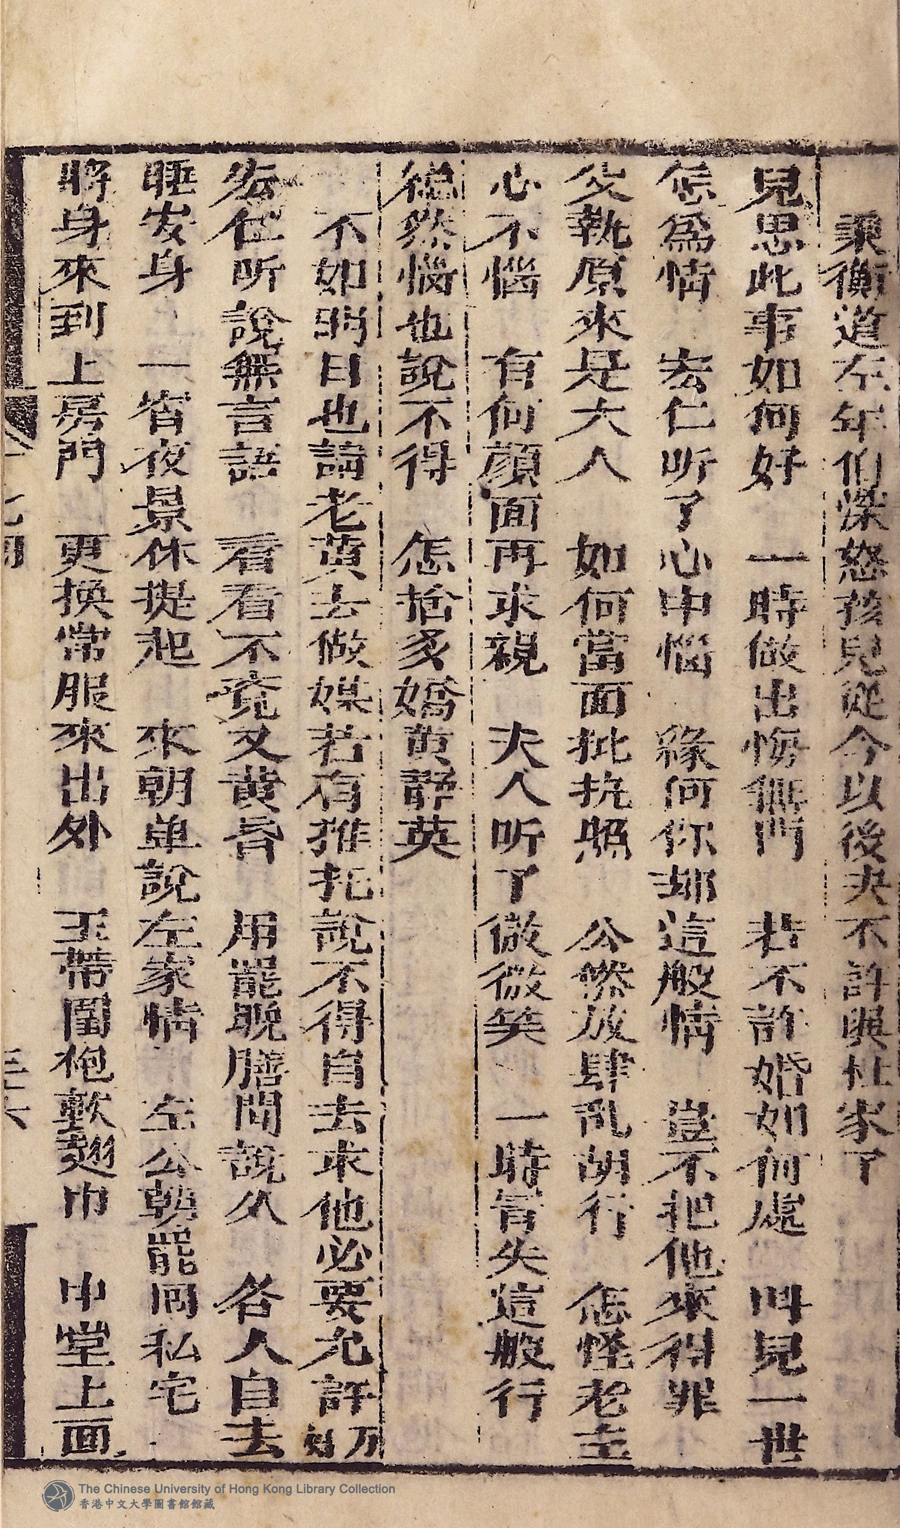 秉衡道左年伯深怒孩兒從今以後决不許與杜家了
兒思此事如何好 一時做出悔無門 若不許婚如何處 叫兒一世
怎為情 宏仁听了心中惱 緣何你却這般情 豈不把他來得罪
父執原來是大人 如何當面批抗照 公然放肆乱胡行 怎怪老主
心不惱 有何顏面再求親 夫人听了微微笑 一時皆失這般行
縱然惱也說不得 怎捨多嬌黄靜英
不如明日也請老黄去做媒若有推托說不得自去求他必要允許
宏仁听說無言語 看看不覺又黄昏 用罷晚膳閒說久 各人自去
睡安身 一宵夜景休提起 來朝单說左家情 左公朝罷囘私宅
將身來到上房門 更換常服來出外 玉帶圍袍軟翅巾 中堂上面
The Chinese University of Hong Kong Library Collection
香港中文大學圖書館館藏